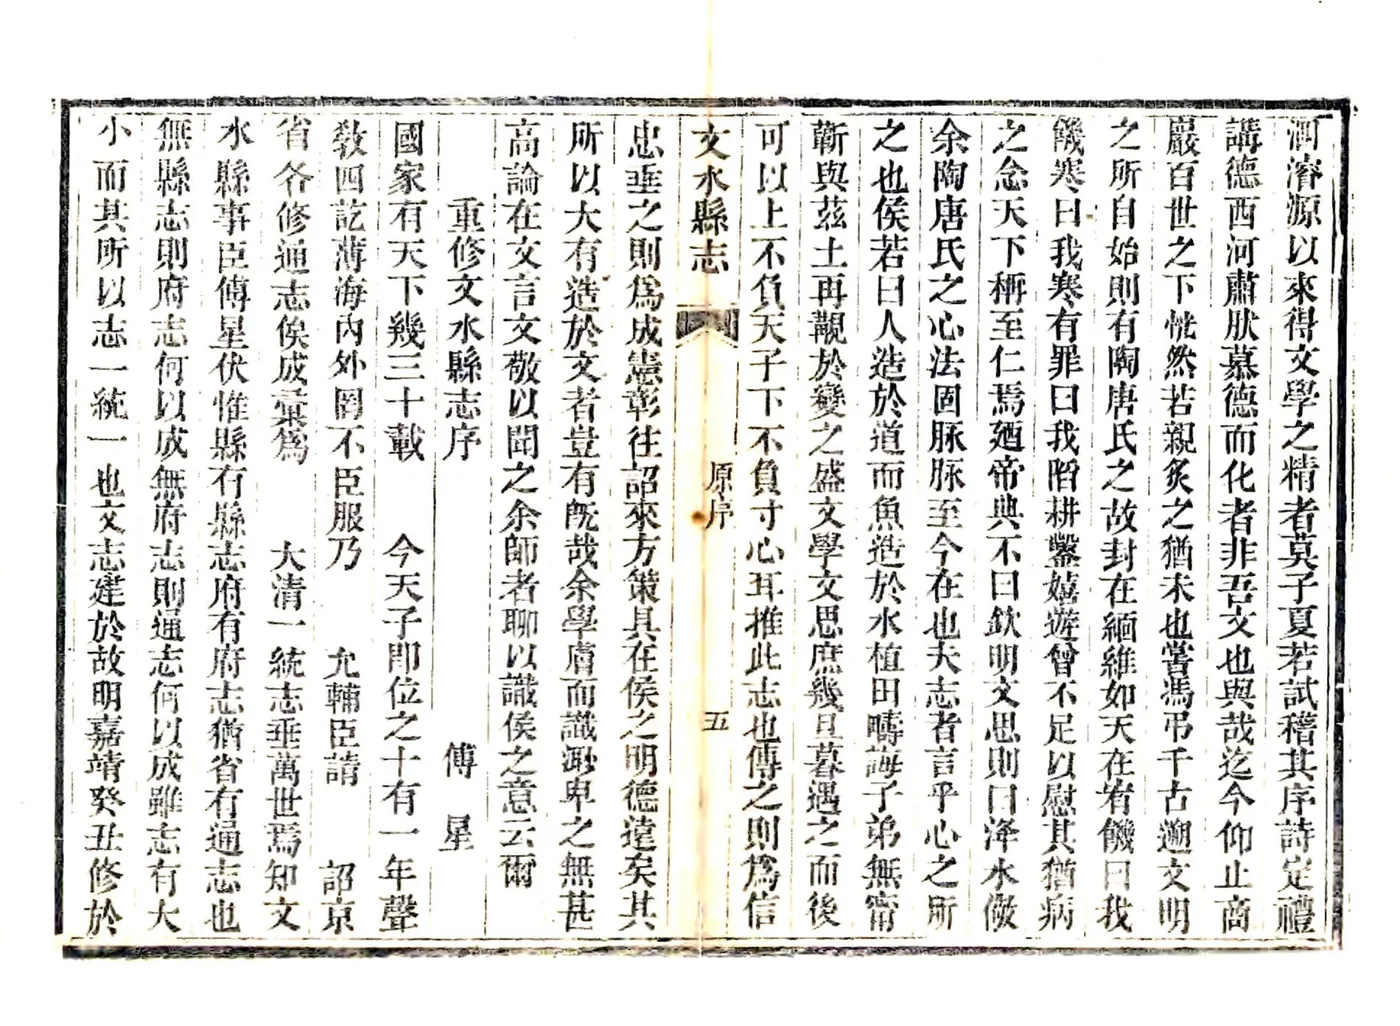 洄濬源以來得文學之精者莫子夏若試稽其序詩定禮
講德西河肅肰慕德而化者非吾文也與哉迄今仰止商
巖百世之下恍然若親炙之猶未也嘗馮弔千古遡文明
之所自始則有陶唐氏之故封在緬維如天在宥饑曰我
饑寒曰我寒有罪曰我陷耕鑿嬉遊曾不足以慰其猶病
之念天下稱至仁焉廼帝典不曰欽明文思則曰洚水儆
余陶唐氏之心法固脉脉至今在也夫志者言乎心之所
之也侯若曰人造於道而魚造於水植田疇誨子弟無甯
蘄與茲土再覯於變之盛文學文思庶幾旦暮遇之而後
可以上不負天子下不負寸心耳推此志也傳之則爲信
文水縣志
原序
五
忠垂之則爲成憲彰往詔來方策具在侯之明德遠矣其
所以大有造於文者豈有旣哉余學膚而識渺卑之無甚
高論在文言文敬以聞之余師者聊以識侯之意云爾
重修文水縣志序
傅星
國家有天下幾三十載 今天子即位之十有一年聲
敎四訖薄海內外罔不臣服乃 允輔臣請 詔京
省各修通志俟成彙爲 大清一統志垂萬世焉知文
水縣事臣傅星伏惟縣有縣志府有府志猶省有通志也
無縣志則府志何以成無府志則通志何以成雖志有大
小而其所以志一統一也文志建於故明嘉靖癸丑修於